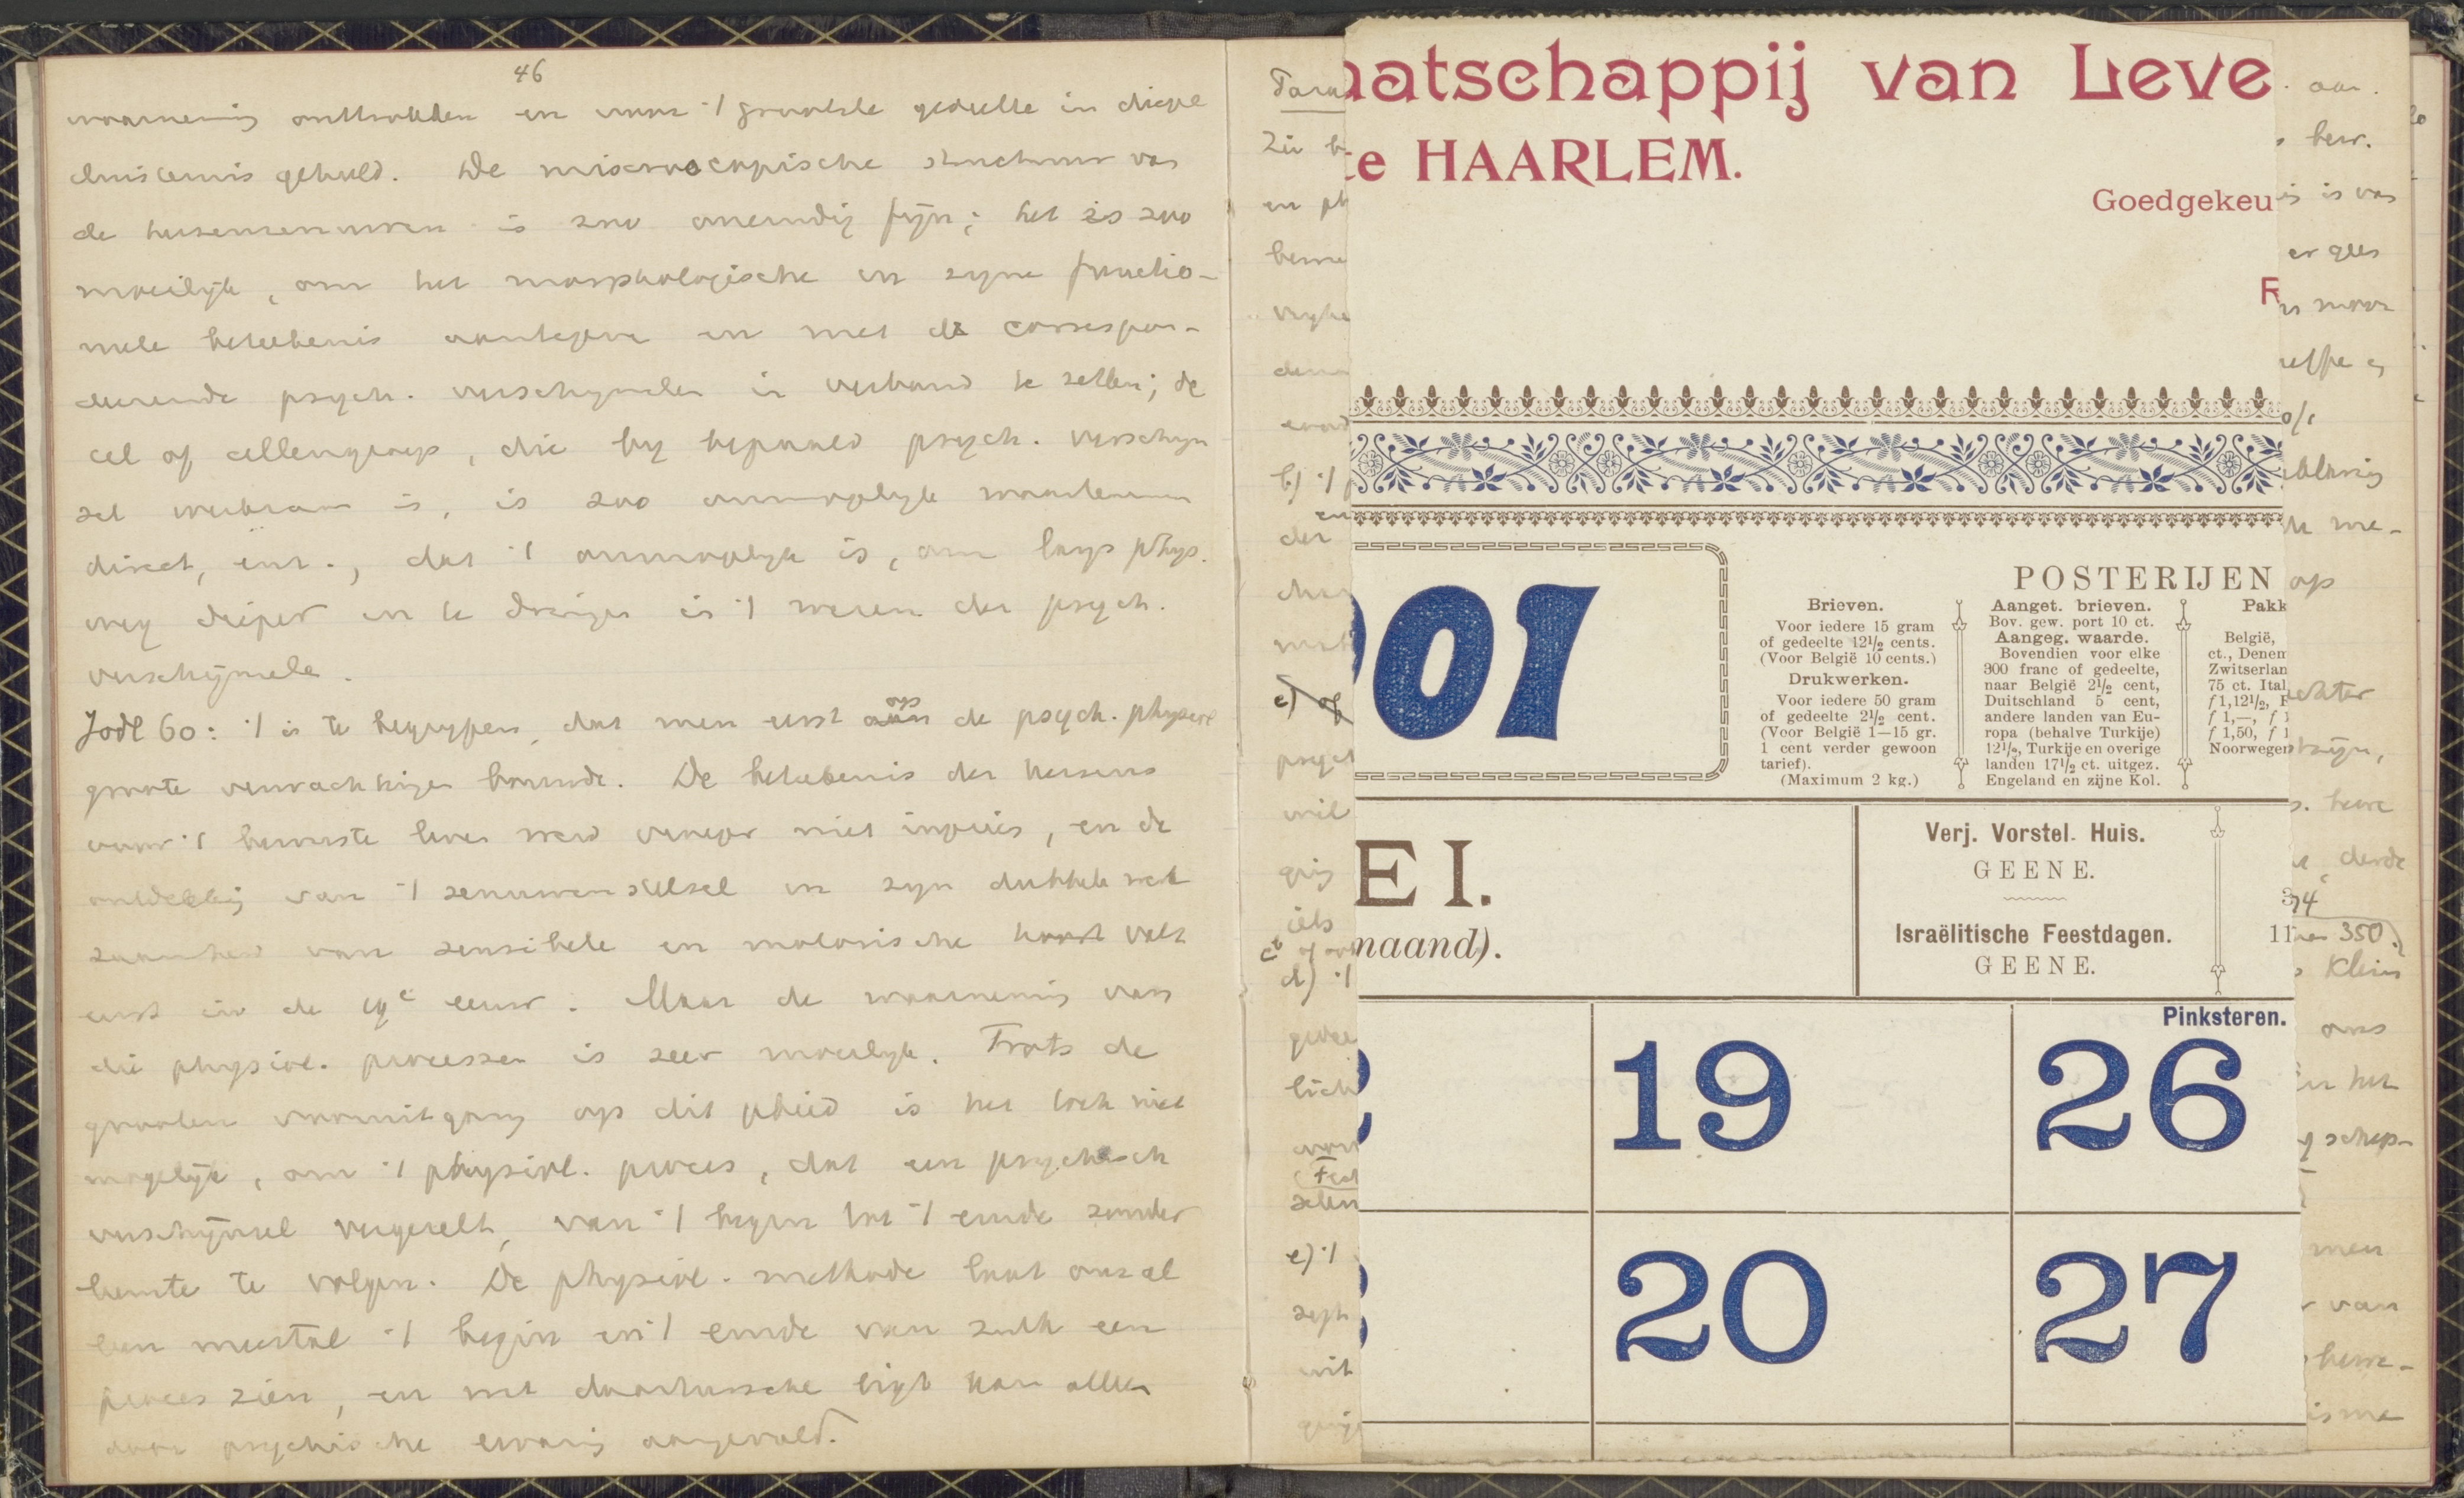 46
waarneming onttrokken en voor 't grootste gedeelte in diepe
duisternis gehuld. De microscopische structuur van
de hersenzenuwen is zoo oneindig fijn; het is zoo
moeilijk, om het morphologische in zijne functio-
neele beteekenis aantegeven en met de correspon-
deerende psych. verschijnselen in verband te zetten; de
cel of cellengroep, die bij bepaald psych. verschijn
sel werkzaam is, is zoo onmogelijk waartenemen
direct, enz., dat 't onmogelijk is, om langs phys.
weg dieper in te dringen in 't wezen der psych.
verschijnselen.
Jodl 60: 't is te begrijpen, dat men eerst op de psych. physiol
groote verwachtingen bouwde. De beteekenis der hersens
voor 't bewuste leven werd vroeger niet ingezien, en de
ontdekking van 't zenuwenstelsel in zijn dubbele werk
zaamheid van sensibele en motorische valt
eerst in de 19e eeuw. Maar de waarneming van
die physiol. processen is zeer moeilijk. Trots de
grooten vooruitgang op dit gebied is het toch niet
mogelijk, om 't physiol. proces, dat een psychisch
verschijnsel vergezelt, van 't begin tot 't einde zonder
leemte te volgen. De physiol. methode laat ons al
leen meestal 't begin en 't einde van zulk een
proces zien, en wat daartusschen ligt kan alleen
door psychische ervaring aangevuld.
aatschappij van Leve
te HAARLEM.
Goedgekeu
R
901
POSTERIJEN
Brieven.
Voor iedere 15 gram
of gedeelte 12½ cents.
(Voor België 10 cents.)
Drukwerken.
Voor iedere 50 gram
of gedeelte 2½ cent.
(Voor België 1—15 gr.
1 cent verder gewoon
tarief).
(Maximum 2 kg.)
Aanget. brieven.
Bov. gew. port 10 ct.
Aangeg. waarde.
Bovendien voor elke
300 franc of gedeelte,
naar België 2½ cent,
Duitschland 5 cent,
andere landen van Eu-
ropa (behalve Turkije)
12½, Turkije en overige
landen 17½ ct. uitgez.
Engeland en zijne Kol.
Pakk
België,
ct., Denem
Zwitserlan
75 ct. Ital
f 1,12½, F
f 1,—, f 1
f 1,50, f 1
Noorwegen
EI.
maand).
Verj. Vorstel. Huis.
GEENE.
Israëlitische Feestdagen.
GEENE.
3
11
Pinksteren.
19
26
20
27
b) 't
der
c) of
iets
d) 't
e) 't
uit
aan.
bew.
is van
er
maar
me-
op
echter
zijn,
derde
350
Klein
ons
in het
men
van